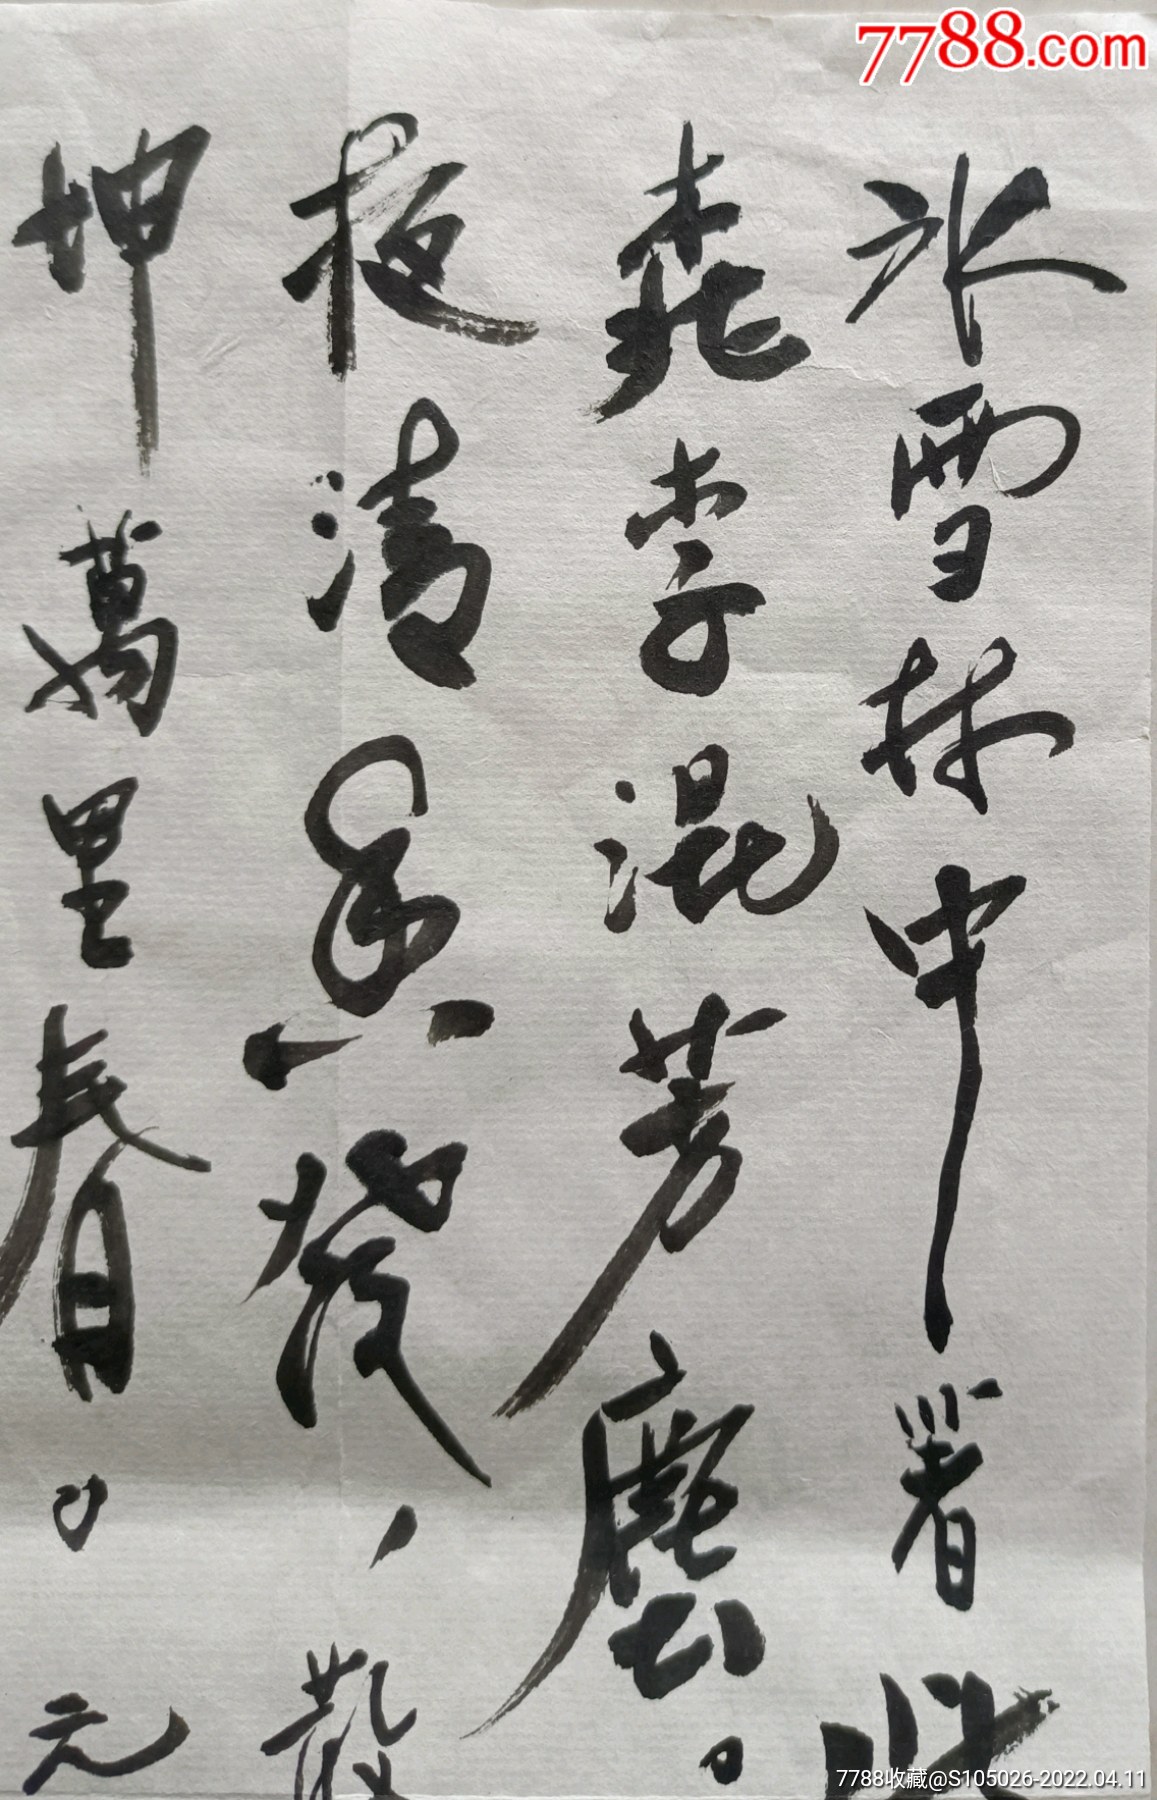 7788.com
冰雪林中著此
桃李混芳塵。
夜清香發，散
坤萬里春。元
7788收藏@S105026-2022.04.11